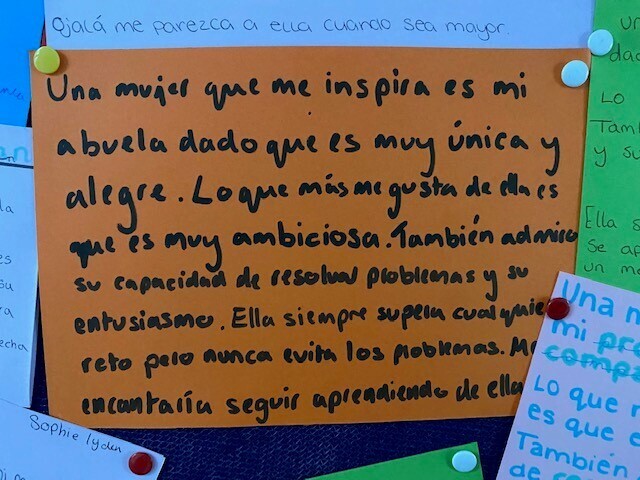 Ojalá me parezca a ella cuando sea mayor.
Una mujer que me inspira es mi
abuela dado que es muy única y
alegre. Lo que más me gusta de ella es
que es muy ambiciosa. También admiro
su capacidad de resolver problemas y su
entusiasmo. Ella siempre supera cualquie
reto pero nunca evita los problemas. Me
encantaría seguir aprendiendo de ella
Sophie lyden
un
dad
Lo
Tam
y su
Ella s
Se ap
un m
Una m
mi pr
comp
LO que m
es que e
También
de
echa